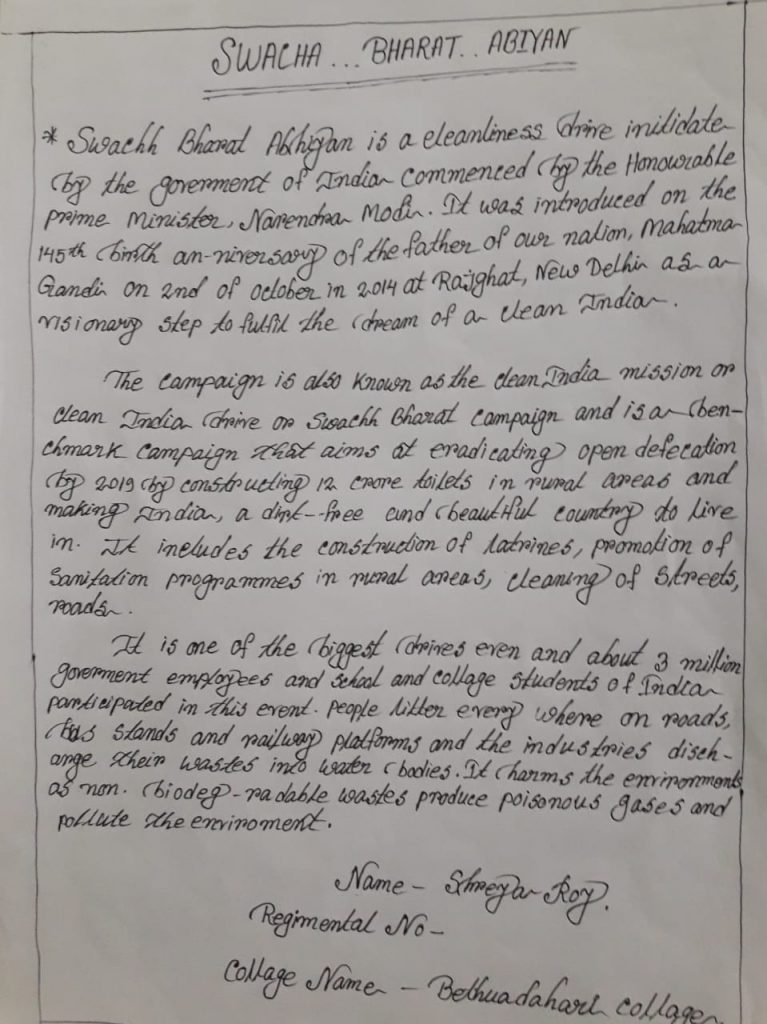 SWACHA ... BHARAT .. ABIYAN
* Swachh Bharat Abhiyan is a cleanliness drive initidate
by the goverment of India commenced by the Honourable
prime Minister, Narendra Modi. It was introduced on the
145th birth an-niversary of the father of our nation, Mahatma
Gandi on 2nd of october in 2014 at Rajghat, New Delhi as a
visionary step to fulfil the dream of a clean India.
The campaign is also known as the clean India mission or
clean India drive or Swachh Bharat Campaign and is a ben-
chmark campaign that aims at eradicating open defecation
by 2019 by constructing 12 crore toilets in rural areas and
making India, a dirt-free and beautiful country to live
in. It includes the construction of latrines, promotion of
Sanitation programmes in rural areas, cleaning of streets,
roads.
It is one of the biggest drives even and about 3 million
goverment employees and school and collage students of India
participated in this event. people litter every where on roads,
bus stands and railway platforms and the industries disch-
arge their wastes into water bodies. It harms the environments
as non. biodeg-radable wastes produce poisonous gases and
pollute the enviroment.
Name - Shreya Roy.
Regimental No-
Collage Name - Bethuadahari collage